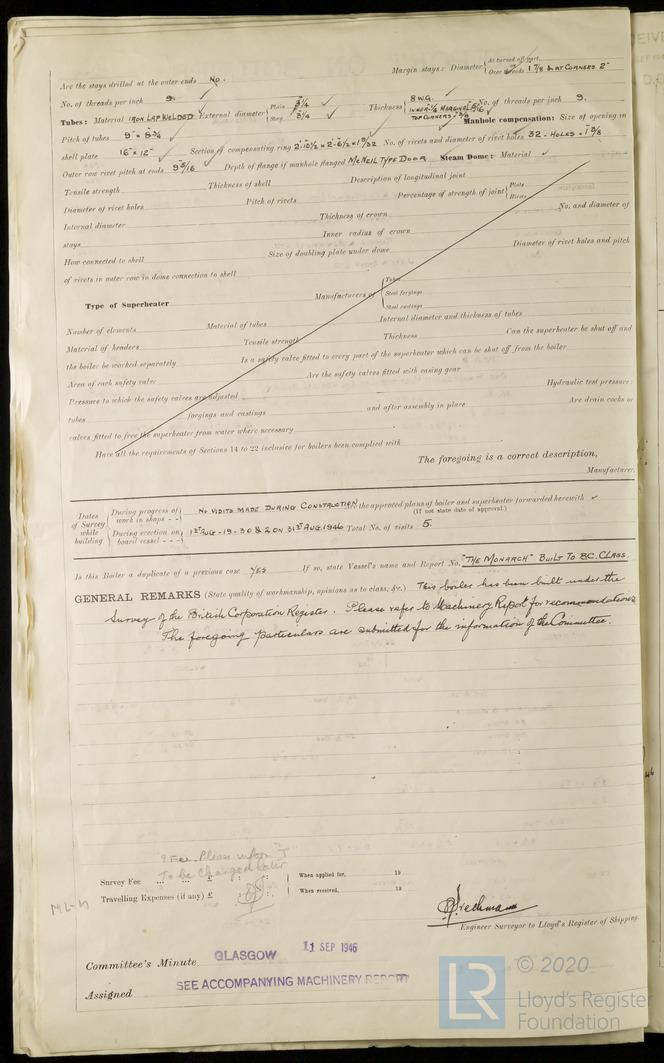 Margin stays: Diameter { At turned off part,
Over threads 1 7/8 & AT CORNERS 2"
Are the stays drilled at the outer ends No.
No. of threads per inch 9. External diameter { Plain 3 1/4
Stay 3 1/4 Thickness { 8 WG. No. of threads per inch 9.
Tubes: Material IRON LAP WELDED Manhole compensation: Size of opening in
Pitch of tubes
shell plate 16" x 12" Section of compensating ring No. of rivets and diameter of rivet holes 32 - HOLES = 1 3/8
Outer row rivet pitch at ends Depth of flange if manhole flanged McNEIL TYPE DOOR Steam Dome: Material
Tensile strength Thickness of shell Description of longitudinal joint
Diameter of rivet holes Pitch of rivets Percentage of strength of joint { Plate
Rivets
Internal diameter Thickness of crown No. and diameter of
stays Inner radius of crown
How connected to shell Size of doubling plate under dome Diameter of rivet holes and pitch
of rivets in outer row in dome connection to shell
Type of Superheater Manufacturers of { Tubes
Steel forgings
Steel castings
Number of elements Material of tubes Internal diameter and thickness of tubes
Material of headers Tensile strength Thickness Can the superheater be shut off and
the boiler be worked separately Is a safety valve fitted to every part of the superheater which can be shut off from the boiler
Area of each safety valve Are the safety valves fitted with easing gear
Pressure to which the safety valves are adjusted Hydraulic test pressure:
tubes forgings and castings and after assembly in place Are drain cocks or
valves fitted to free the superheater from water where necessary
Have all the requirements of Sections 14 to 22 inclusive for boilers been complied with
The foregoing is a correct description,
Manufacturer.
Dates of Survey while building { During progress of work in shops - - } NO VISITS MADE DURING CONSTRUCTION the approved plans of boiler and superheater forwarded herewith
(If not state date of approval.)
{ During erection on board vessel - - - } 1ST AUG - 19 - 30 & 2 ON 31ST AUG. 1946 Total No. of visits 5.
Is this Boiler a duplicate of a previous case YES If so, state Vessel's name and Report No. "THE MONARCH" BUILT TO B.C. CLASS.
GENERAL REMARKS (State quality of workmanship, opinions as to class, &c.) This boiler has been built under the
Survey of the British Corporation Register. Please refer to Machinery Report for recommendations
The foregoing particulars are submitted for the information of the Committee.
To be Charged later
Survey Fee ... ... £ : : When applied for, 19
Travelling Expenses (if any) £ : : When received, 19
Engineer Surveyor to Lloyd's Register of Shipping.
Committee's Minute GLASGOW 11 SEP 1946
Assigned SEE ACCOMPANYING MACHINERY REPORT
LR © 2020
Lloyd's Register
Foundation